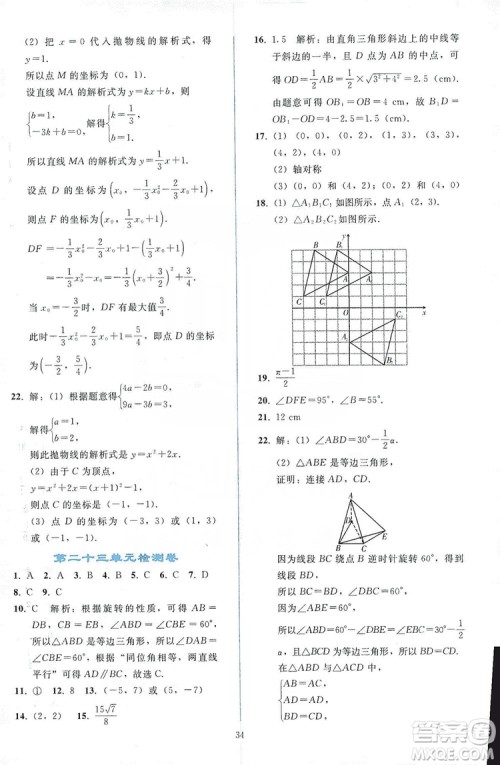 (2) 把 x=0 代入抛物线的解析式，得
y=1.
所以点 M 的坐标为 (0，1).
设直线 MA 的解析式为 y=kx+b，
{b=1， -3k+b=0， 解得{k=1/3， b=1.
所以直线 MA 的解析式为 y=1/3x+1.
设点 D 的坐标为(x₀，-1/3x₀²-2/3x₀+1)，
则点 F 的坐标为(x₀，1/3x₀+1).
DF=-1/3x₀²-2/3x₀+1-(1/3x₀+1)
=-1/3x₀²-x₀=-1/3(x₀+3/2)²+3/4.
当 x₀=-3/2时，DF 有最大值3/4.
此时-1/3x₀²-2/3x₀+1=5/4，即点 D 的坐标
为(-3/2，5/4).
22. 解：(1) 根据题意得{4a-2b=0； 9a-3b=3，
解得{a=1， b=2.
所以抛物线的解析式是 y=x²+2x.
(2) 由于 C 为顶点，
y=x²+2x=(x+1)²-1，
所以点 C 的坐标是 (-1，-1).
(3) 点 D 的坐标是 (1，3) 或 (-3，3) 或
(-1，-1).
第二十三单元检测卷
1. A 2. A 3. B 4. C 5. C 6. C 7. D
8. B 9. C
10. C 解析：根据旋转的性质，可得出 AB=
DB，CB=EB，∠ABD=∠CBE=60°，则
可得出△ABD为等边三角形，∠DAB=
∠CBE=60°，根据“同位角相等，两直线
平行”可得出 AD∥BC，故选 C.
11. ① 12. 8π 13. (-5，7) 或 (5，-7)
14. (2，2) 15. 15√7/8
16. 1.5 解析：由直角三角形斜边上的中线等
于斜边的一半，且点 D 为 AB 的中点，可
得 OD=1/2AB=1/2×√3²+4²=2.5 (cm).
由题意可得 OB₁=OB=4 cm. 故 B₁D
=OB₁-OD=4-2.5=1.5 (cm).
17. (1) (0，0)，(3，4)，(0，2)，(4，2)，(3，
0)，(4，4)
(2) 轴对称
(3) (0，0)，(3，-4)，(0，-2)，(4，-2)
18. (1) △A₁B₁C₁ 如图所示，点 A₁(2，3).
(2) △A₂B₂C₂ 如图所示.
y
B B₁
A A₁
C C₁
O x
C₂
19. π-1/2
20. ∠DFE=95°，∠B≈55°.
21. 12 cm
22. 解：(1) ∠ABD=30°-1/2α.
(2) △ABE 是等边三角形，
证明：连接 AD，CD.
A
D E
B C
因为线段 BC 绕点 B 逆时针旋转 60°，得
到线段 BD，
所以 BC=BD，∠DBC=60°.
又因为∠ABE=60°，
所以∠ABD=60°-∠DBE=∠EBC=30°-1/2
α，且△BCD 是等边三角形.
在△ABD 与△ACD 中，
{AB=AC，
AD=AD，
BD=CD，
34
答案圈
MXQE.COM